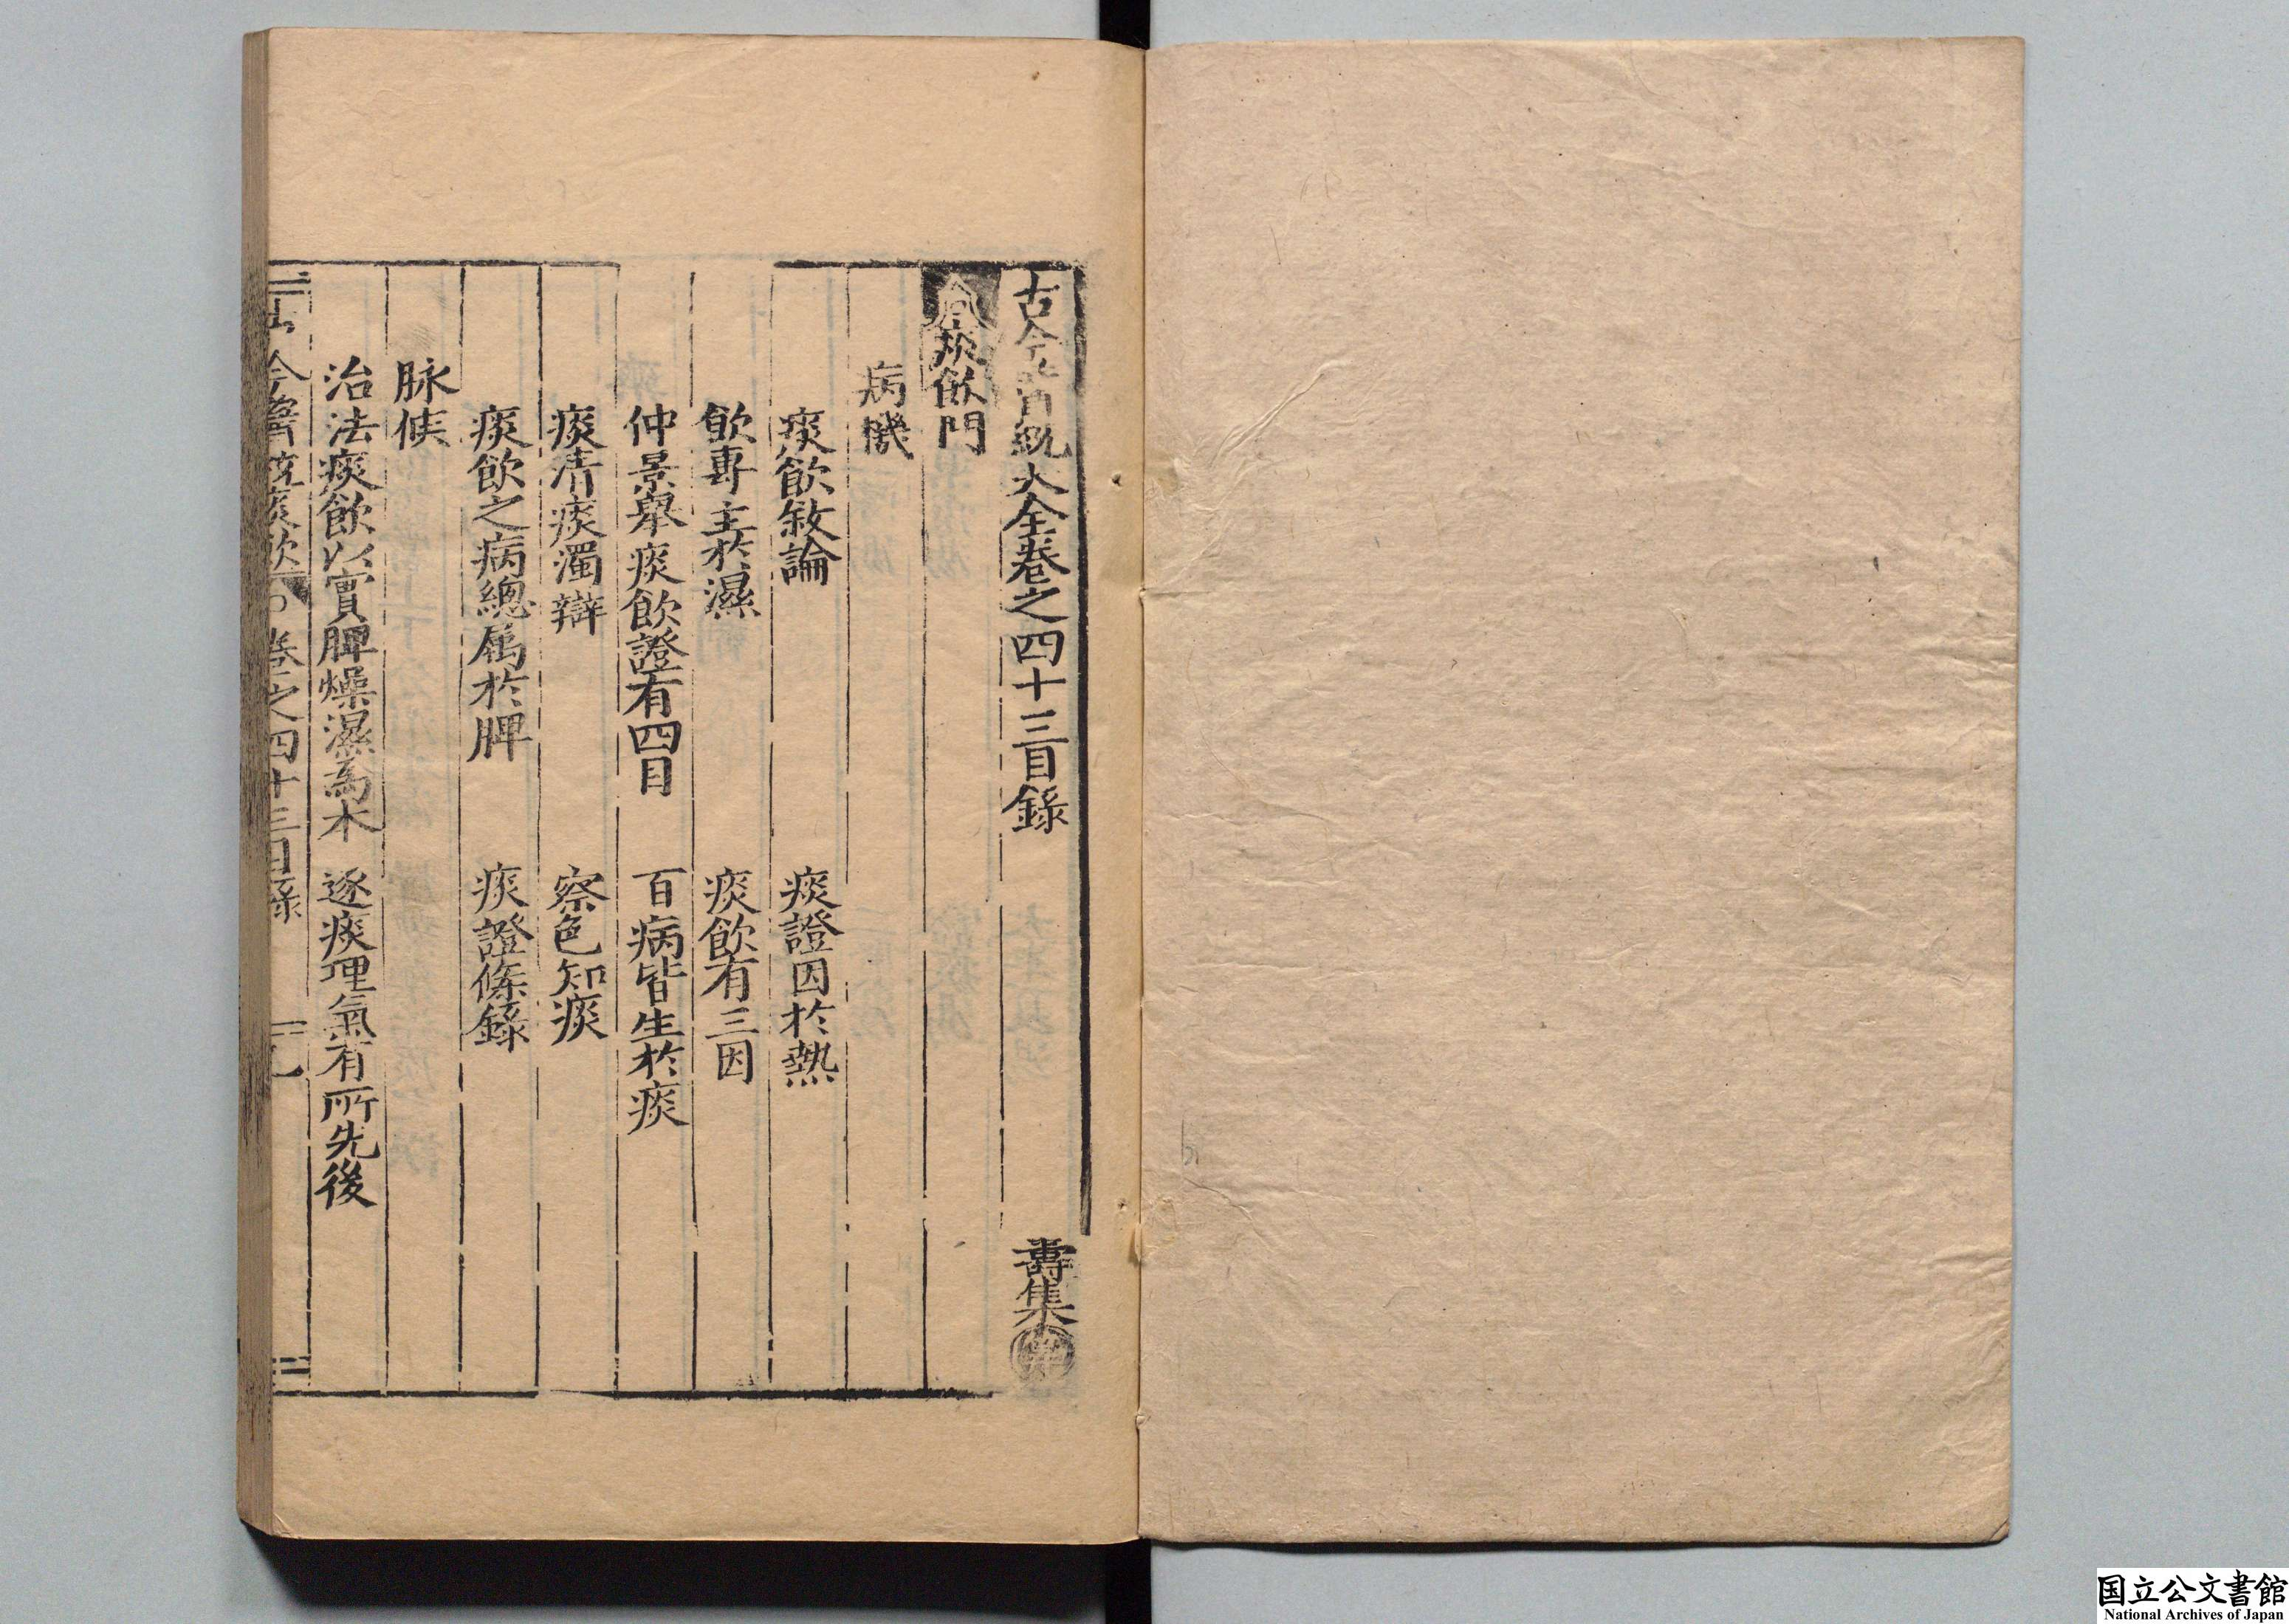 古今醫統大全卷之四十三目錄 壽集
痰飲門
病機
痰飲敘論 痰證因於熱
飲專主於濕 痰飲有三因
仲景舉痰飲證有四目 百病皆生於痰
痰清痰濁辯 察色知痰
痰飲之病總属於脾 痰證條錄
脉候
治法痰飲以實脾燥濕為本 逐痰理氣有所先後
今醫統痰飲 卷之四十三目錄
国立公文書館
National Archives of Japan